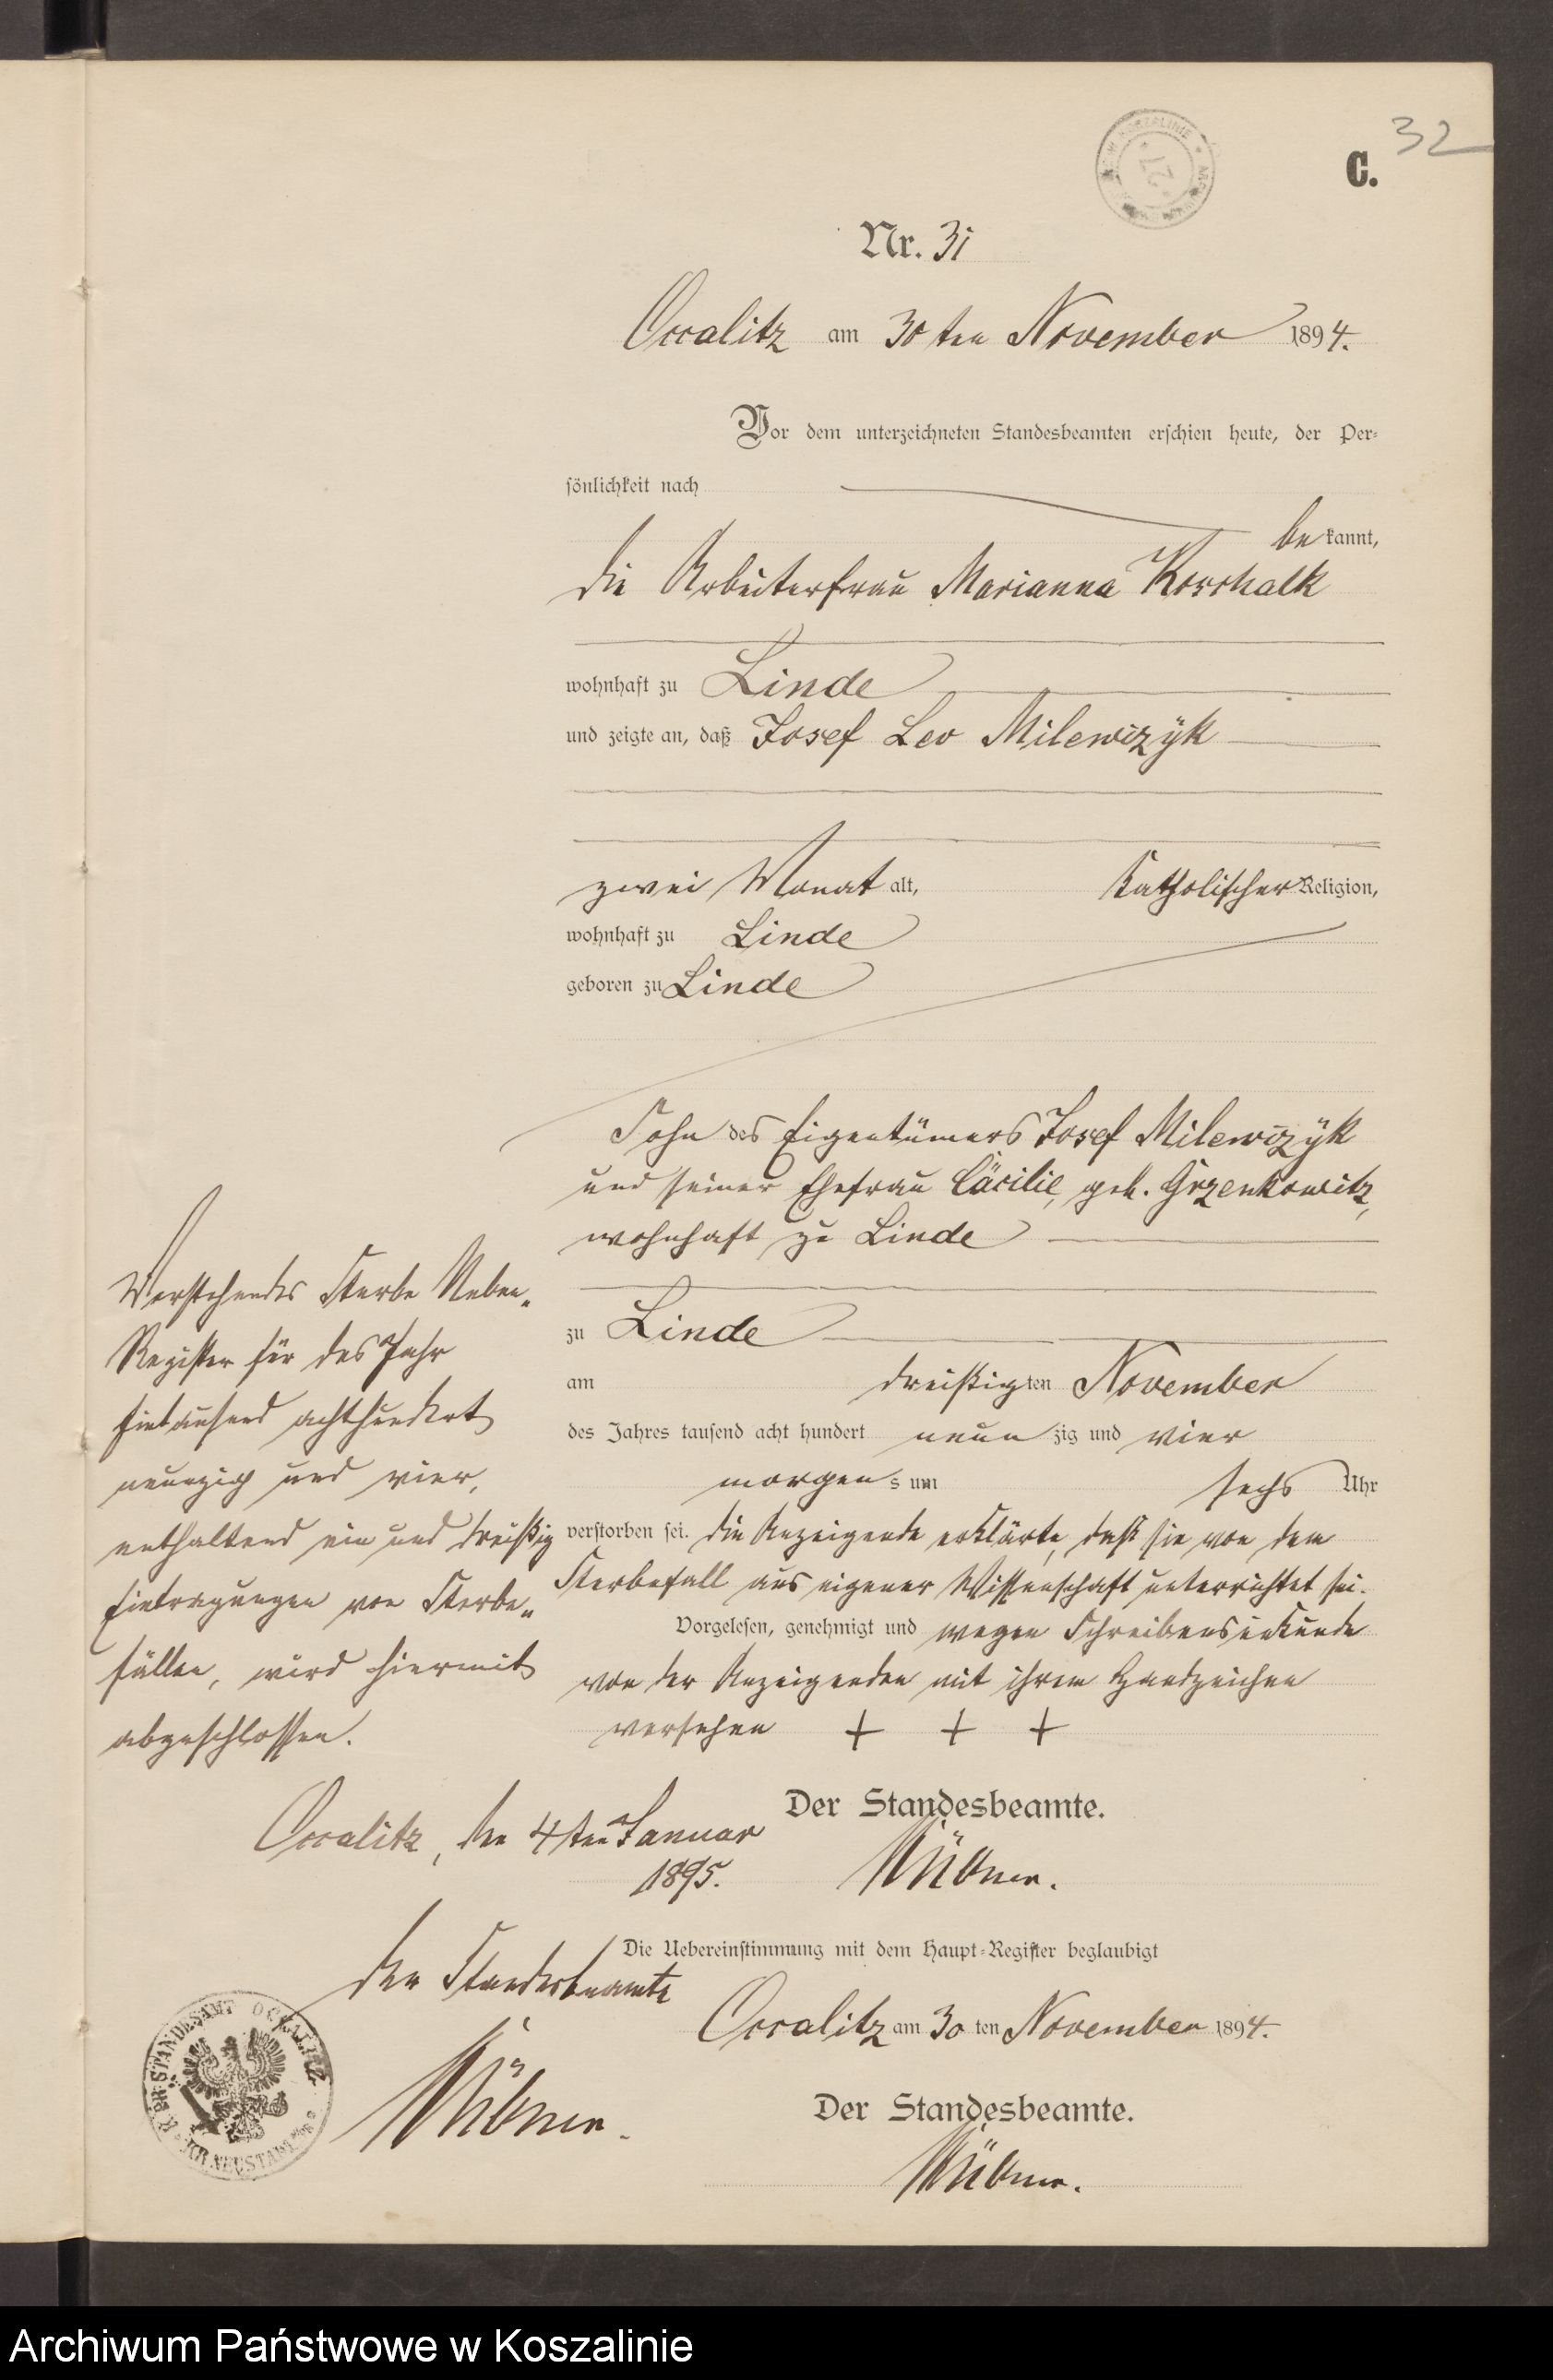 32
C.
Nr. 31
Occalitz am 30ten November 1894.
Vor dem unterzeichneten Standesbeamten erschien heute, der Per-
sönlichkeit nach
bekannt,
die Arbeiterfrau Marianna Koschalk
wohnhaft zu Linde
und zeigte an, daß Josef Leo Milewczÿk
zwei Monat alt, katholischer Religion,
wohnhaft zu Linde
geboren zu Linde
Sohn des Eigentümers Josef Milewczÿk
und seiner Ehefrau Cäcilie, geb. Grzenkowitz,
wohnhaft zu Linde
zu Linde
am dreißigten November
des Jahres tausend acht hundert neunzig und vier
morgens um sechs Uhr
verstorben sei. Die Anzeigende erklärte, daß sie von dem
Sterbefall aus eigener Wissenschaft unterrichtet sei.
Vorgelesen, genehmigt und wegen Schreibensunkunde
von der Anzeigenden mit ihrem Handzeichen
versehen + + +
Der Standesbeamte.
Die Uebereinstimmung mit dem Haupt-Register beglaubigt
Occalitz am 30ten November 1894.
Der Standesbeamte.
Vorstehendes Sterbe Neben-
Register für das Jahr
Eintausend achthundert
neunzig und vier,
enthaltend ein und dreißig
Eintragungen von Sterbe-
fällen, wird hiermit
abgeschlossen.
Occalitz, den 4ten Januar
1895.
Der Standesbeamte
K. PR. STANDESAMT OCCALITZ
KR. NEUSTADT
Archiwum Państwowe w Koszalinie